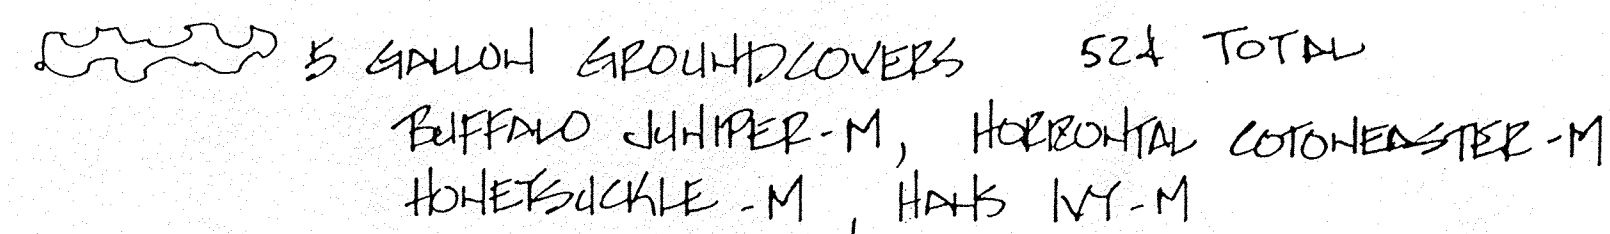 5 GALLON GROUNDCOVERS 524 TOTAL
BUFFALO JUNIPER-M, HORIZONTAL COTONEASTER-M
HONEYSUCKLE-M, HANS IVY-M